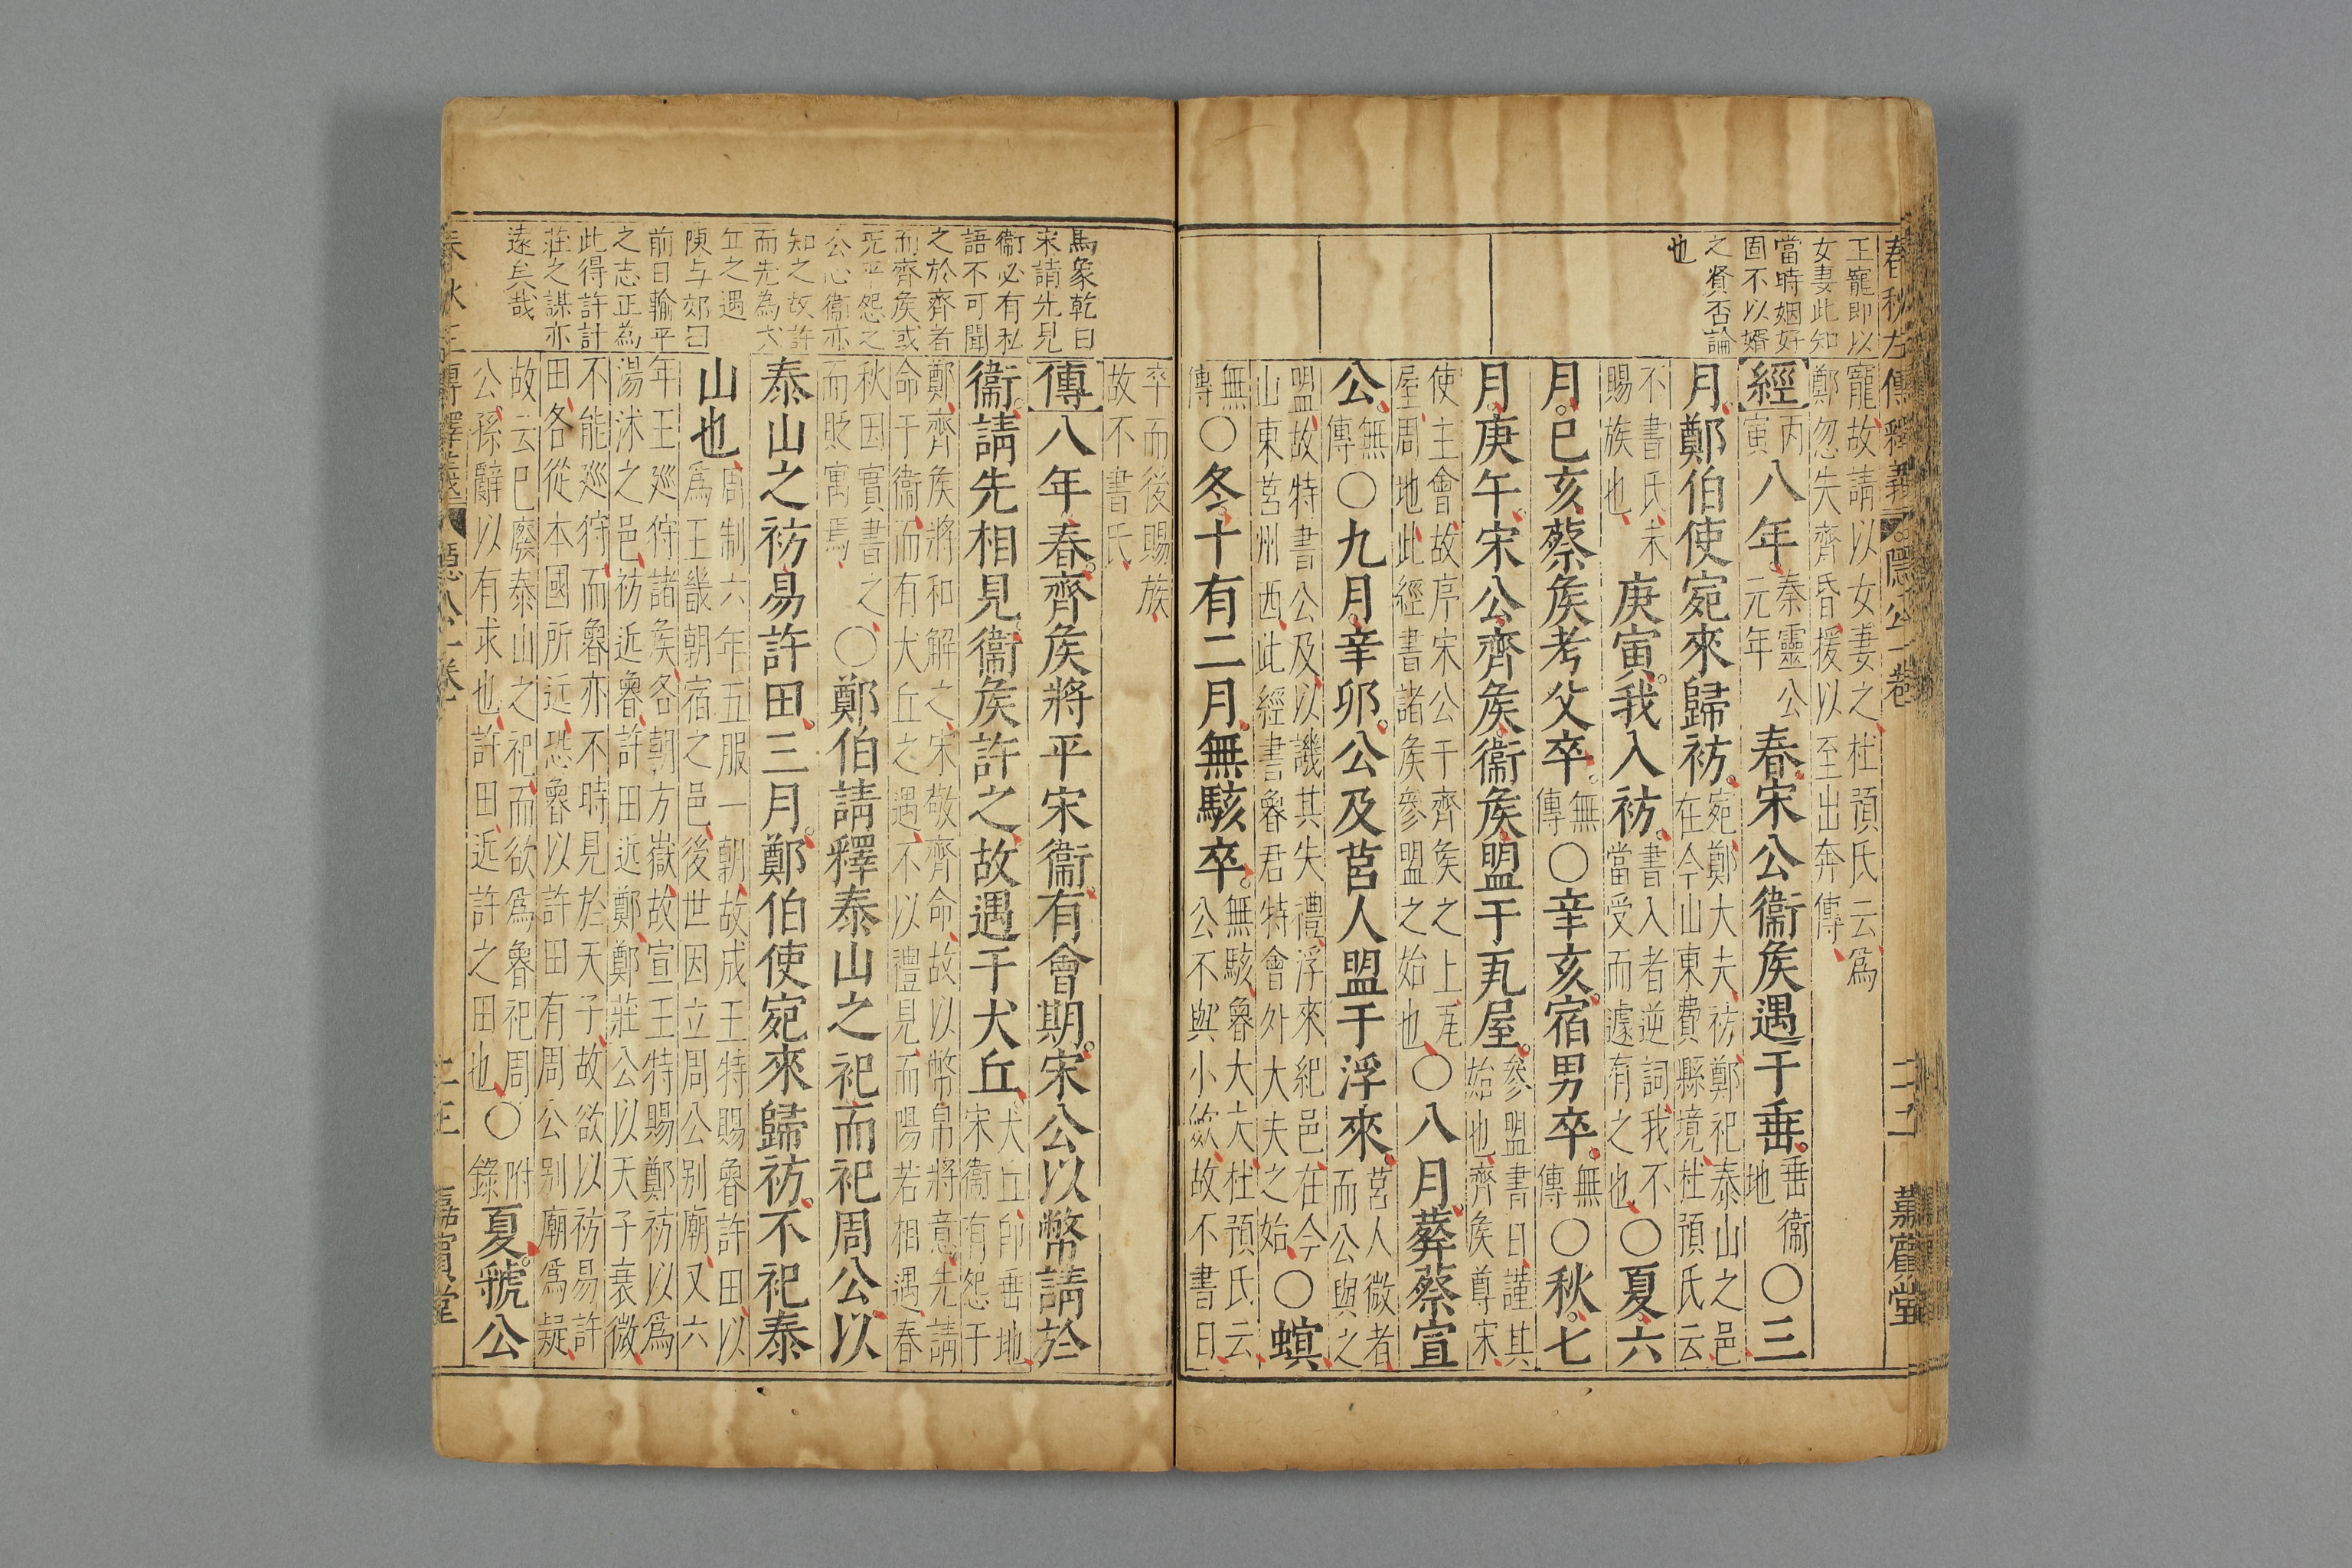 春秋左傳釋義 隱公一卷 二十二 嘉賓堂
王寵即以
女妻此知
當時姻好
固不以婚
之賢否論
也
寵故請以女妻之杜預氏云爲
鄭忽失齊昏援以至出奔傳
經丙寅八年秦靈公元年春宋公衞矦遇于垂垂衞地〇三
月鄭伯使宛來歸祊宛鄭大夫祊鄭祀泰山之邑在今山東費縣境杜預氏云
不書氏未賜族也庚寅我入祊書入者逆詞我不當受而遽有之也〇夏六
月己亥蔡矦考父卒無傳〇辛亥宿男卒無傳〇秋七
月庚午宋公齊矦衞矦盟于瓦屋參盟書日謹其始也齊矦尊宋
使主會故序宋公于齊矦之上瓦屋周地此經書諸矦參盟之始也〇八月葬蔡宣
公無傳〇九月辛卯公及莒人盟于浮來莒人微者而公與之
盟故特書公及以譏其失禮浮來紀邑在今山東莒州西此經書魯君特會外大夫之始〇螟
無傳〇冬十有二月無駭卒無駭魯大夫杜預氏云公不與小斂故不書日
卒而後賜族
故不書氏
馬象乾曰
宋請先見
衞必有私
語不可聞
之於齊者
而齊矦或
旣平怨之
公心衞亦
知之故許
而先為犬
丘之遇
陳与郊曰
前日輸平
之志正為
此得許計
莊之謀亦
遠矣哉
傳八年春齊矦將平宋衞有會期宋公以幣請於
衞請先相見衞矦許之故遇于犬丘犬丘即垂地宋衞有怨于
鄭齊矦將和解之宋敬齊命故以幣帛將意先請命于衞而有犬丘之遇不以禮見而陽若相遇春
秋因實書之而貶寓焉〇鄭伯請釋泰山之祀而祀周公以
泰山之祊易許田三月鄭伯使宛來歸祊不祀泰
山也周制六年五服一朝故成王特賜魯許田以爲王畿朝宿之邑後世因立周公别廟又六
年王廵狩諸矦各朝方嶽故宣王特賜鄭祊以爲湯沐之邑祊近魯許田近鄭鄭莊公以天子衰微
不能廵狩而魯亦不時見於天子故欲以祊易許田各從本國所近恐魯以許田有周公别廟爲疑
故云已廢泰山之祀而欲爲魯祀周公孫辭以有求也許田近許之田也〇附錄夏虢公
春秋左傳釋義 隱公一卷 二十三 嘉賓堂